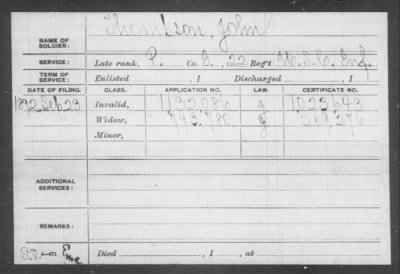 NAME OF SOLDIER: Thompson, John
SERVICE: Late rank, P. Co. E, 22 Reg't U.S.C. Inf.
TERM OF SERVICE: Enlisted , 1 Discharged , 1
DATE OF FILING. CLASS. APPLICATION NO. LAW. CERTIFICATE NO.
1892 Feb 23 Invalid, 1132,086 1,023,643
Widow, 793,780 569,276
Minor,
ADDITIONAL SERVICES:
REMARKS:
Died , 1 , at